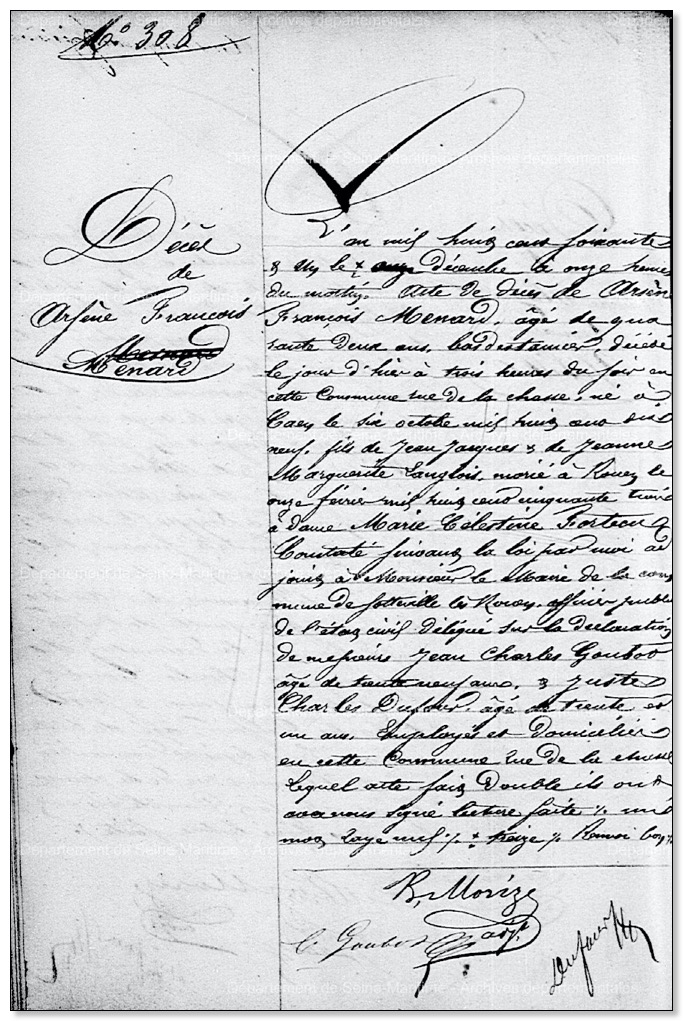 N° 308
Décès
de
Arsène François
Menard
L'an mil huit cent soixante
& un le + onze décembre à onze heures
du matin. Acte de décès de Arsène
François Menard, âgé de qua
rante deux ans, décédé
le jour d'hier à trois heures du soir en
cette Commune rue de la chasse, né à
Caen le six octobre mil huit cent dix
neuf, fils de Jean Jacques & de Jeanne
Marguerite Langlois, marié à Rouen le
onze février mil huit cent cinquante
à dame Marie Célestine
Constaté suivant la loi par moi ad
joint à Monsieur le Maire de la com
mune de Sotteville lès Rouen, officier public
de l'état civil délégué sur la déclaration
de messieurs Jean Charles Goubot
âgé de trente neuf ans, & Juste
Charles Dufour, âgé de trente et
un ans, Employés et domiciliés
en cette Commune rue de la chasse
lequel acte fait double ils ont
avec nous signé lecture faite % un
mot rayé nul % + treize % Renvoi bon %
B. Morize
adjt
C. Goubot
Dufour
Département de Seine-Maritime - Archives départementales